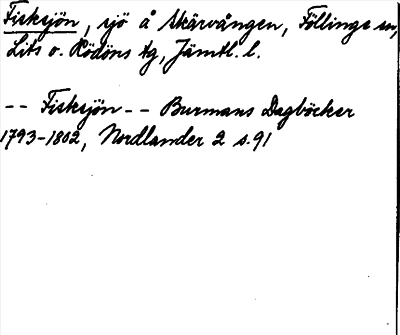 Fisksjön, sjö å Skärvången, Föllinge sn,
Lits o. Rödöns tg, Jämtl. l.
-- Fisksjön -- Burmans Dagböcker
1793-1802, Nordlander 2 s. 91